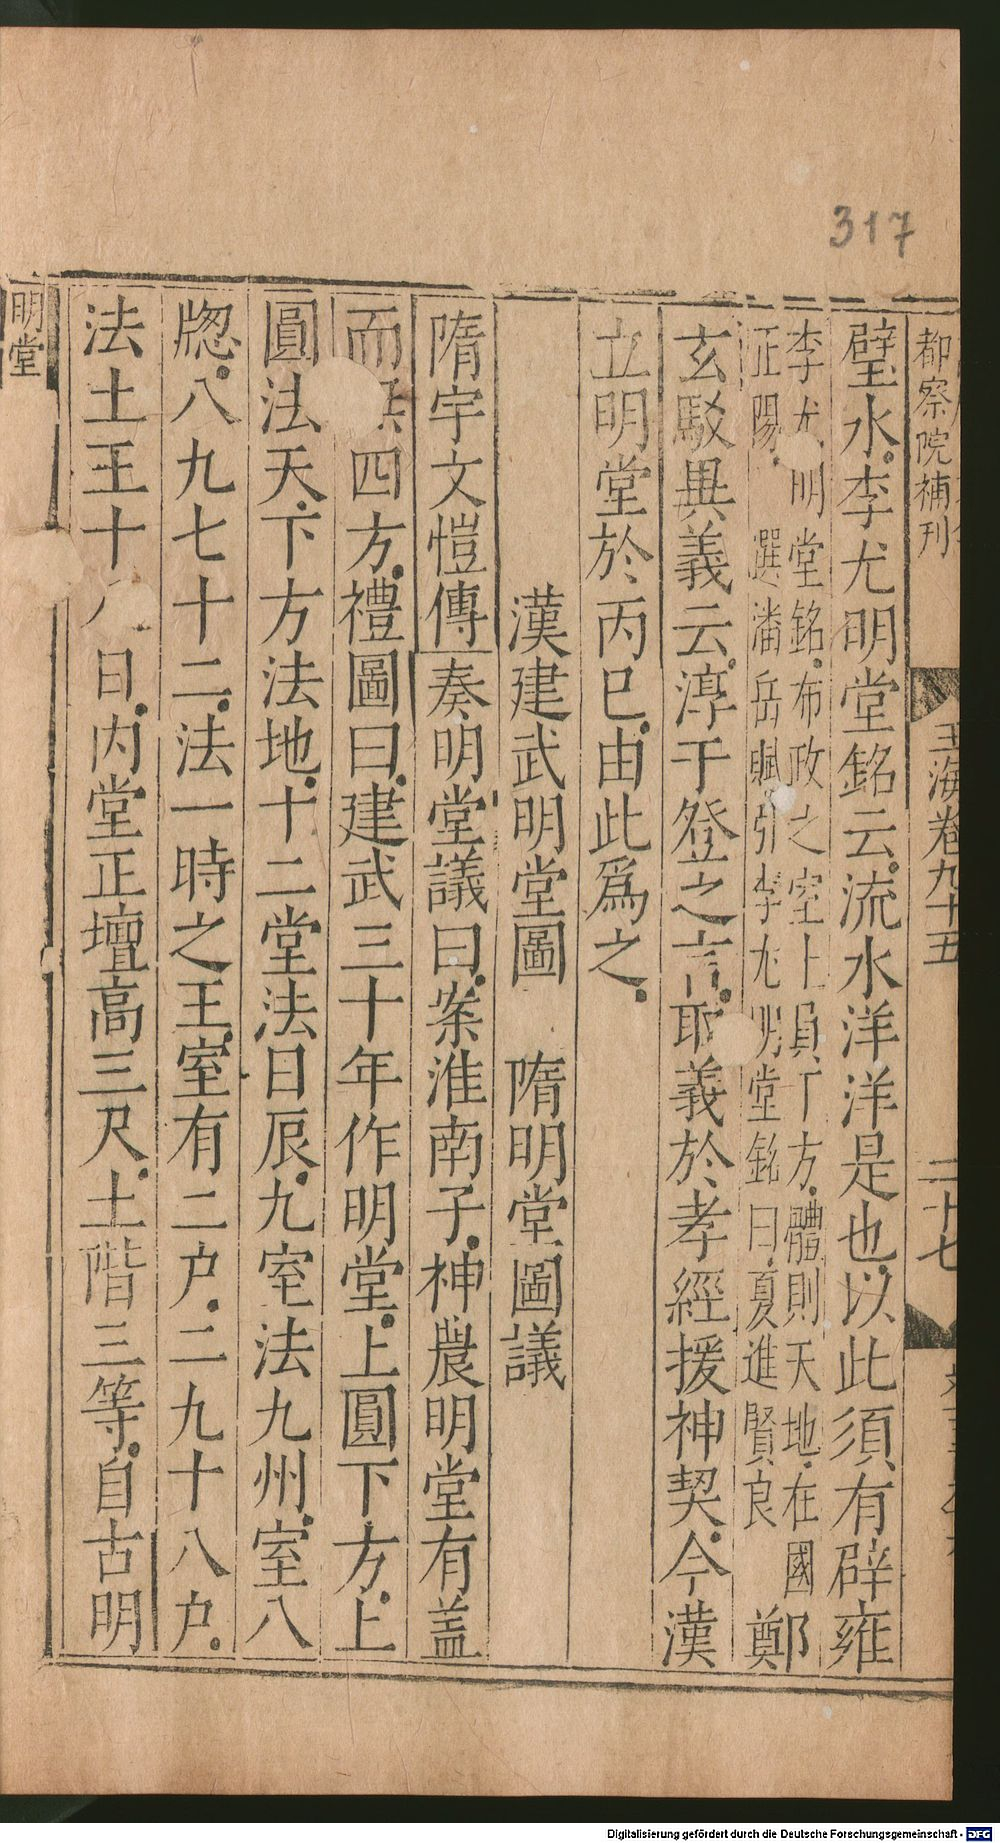 317
都察院補刊
玉海卷九十五
二十七
璧水李尤明堂銘云流水洋洋是也以此須有辟雍
李尤明堂銘布政之室上員下方體則天地在國
正陽選潘岳賦引李尤明堂銘曰夏進賢良
鄭
玄駁異義云淳于登之言取義於孝經援神契今漢
立明堂於丙巳由此為之
漢建武明堂圖 隋明堂圖議
隋宇文愷傳奏明堂議曰案淮南子神農明堂有盖
而無四方禮圖曰建武三十年作明堂上圓下方上
圓法天下方法地十二堂法日辰九室法九州室八
牕八九七十二法一時之王室有二户二九十八户
法土王十八日内堂正壇高三尺土階三等自古明
明堂
Digitalisierung gefördert durch die Deutsche Forschungsgemeinschaft - DFG